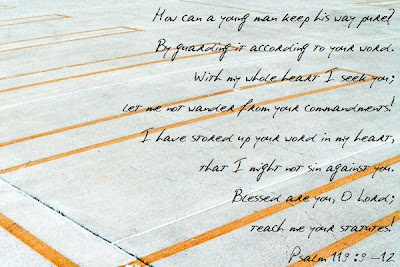 How can a young man keep his way pure?
By guarding it according to your word.
With my whole heart I seek you;
let me not wander from your commandments!
I have stored up your word in my heart,
that I might not sin against you.
Blessed are you, O Lord;
teach me your statutes!
Psalm 119:9-12